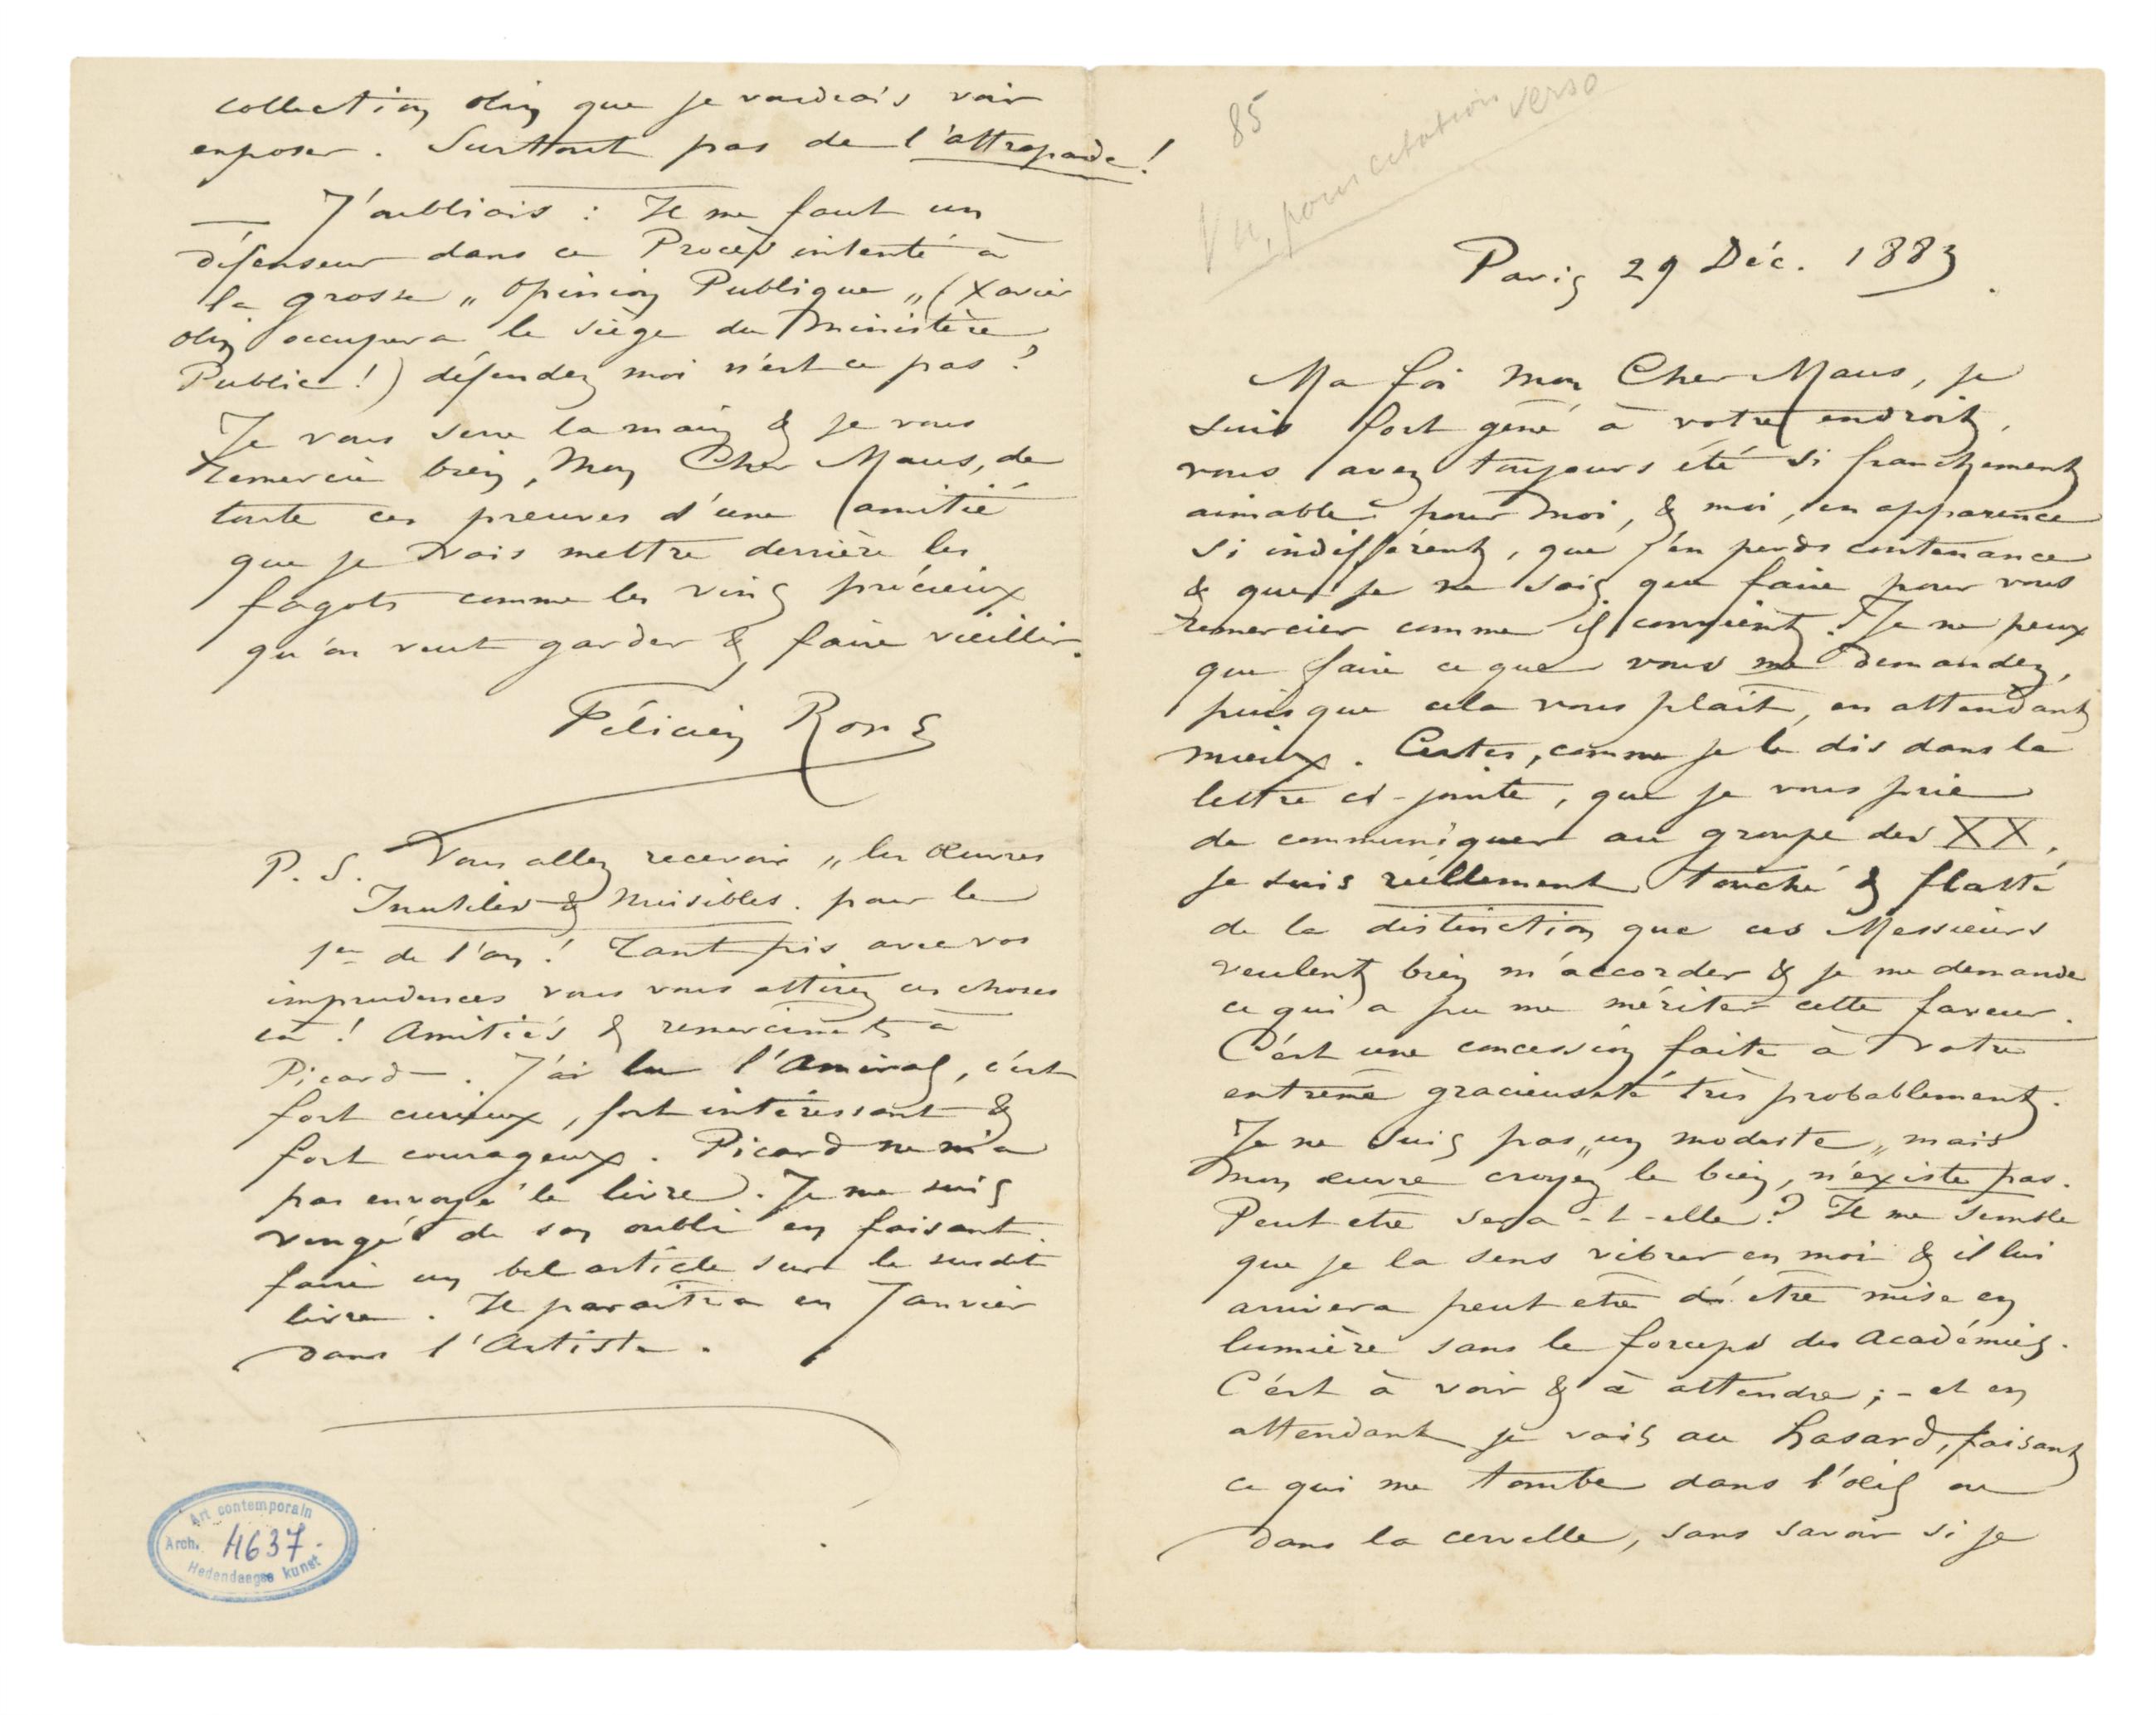 85
Vu, pour citation verso
Paris 29 Déc. 1883.
Ma foi Mon Cher Maus, je
suis fort gêné à votre endroit,
vous avez toujours été si franchement
aimable pour moi, & moi, en apparence
si indifférent, que j'en perds contenance
& que je ne sais que faire pour vous
remercier comme il convient. Je ne peux
que faire ce que vous me demandez,
puisque cela vous plait, en attendant
mieux. Certes, comme je le dis dans la
lettre ci-jointe, que je vous prie
de communiquer au groupe des XX,
je suis réellement touché & flatté
de la distinction que ces Messieurs
veulent bien m'accorder & je me demande
ce qui a pu me mériter cette faveur.
C'est une concession faite à votre
extrême gracieuseté très probablement.
Je ne suis pas „un modeste„ mais
mon œuvre croyez le bien, n'existe pas.
Peut etre sera-t-elle? Il me semble
que je la sens vibrer en moi & il lui
arrivera peut etre d'être mise en
lumière sans le forceps des Académies.
C'est à voir & à attendre; - et en
attendant je vais au hasard, faisant
ce qui me tombe dans l'œil ou
dans la cervelle, sans savoir si je
collection Olin que je voudrais voir
exposer. Surtout pas de l'attrapade!
— J'oubliais : Il me faut un
défenseur dans ce Procès intenté à
la grosse „Opinion Publique„ (Xavier
Olin occupera le siège du Ministère
Public!) défendez moi n'est ce pas?
Je vous serre la main & je vous
remercie bien, Mon Cher Maus, de
toute ces preuves d'une amitié
que je vais mettre derrière les
fagots comme les vins précieux
qu'on veut garder & faire vieillir.
Félicien Rops
P. S. Vous allez recevoir „les Œuvres
Inutiles & Nuisibles. pour le
1er de l'an! Tant pis avec vos
imprudences vous vous attirez ces choses
là! Amitiés & remerciments à
Picard —. J'ai lu l'Amiral, c'est
fort curieux, fort intéressant &
fort courageux. Picard ne m'a
pas envoyé le livre. Je me suis
vengé de son oubli en faisant
faire un bel article sur le susdit
livre. Il paraîtra en Janvier
dans l'Artiste.
Art contemporain
Arch. 4637.
Hedendaagse kunst